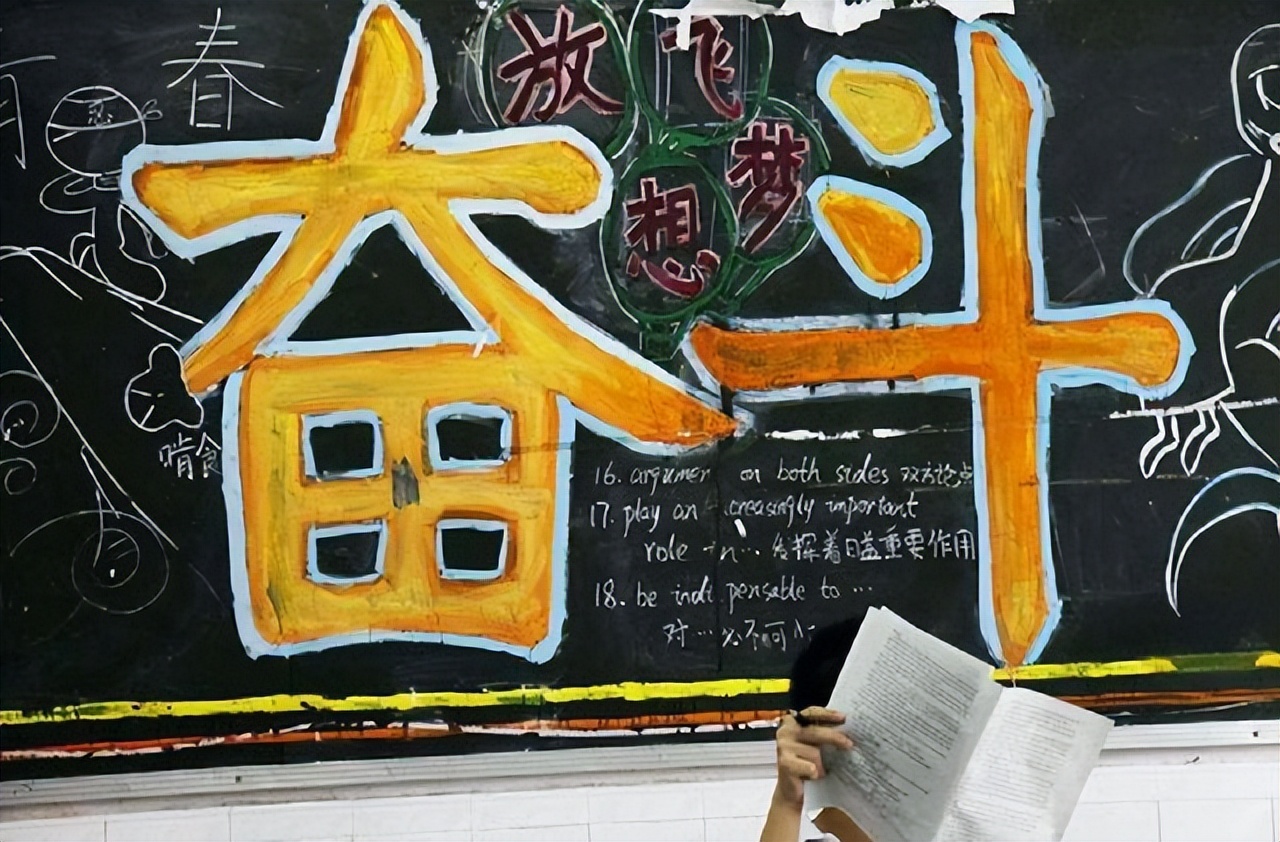 春
放飞
梦
想
奋斗
啃食
16. argumen on both sides 双方论点
17. play an creasingly important
role in… 发挥着日益重要作用
18. be indi pensable to …
对…必不可